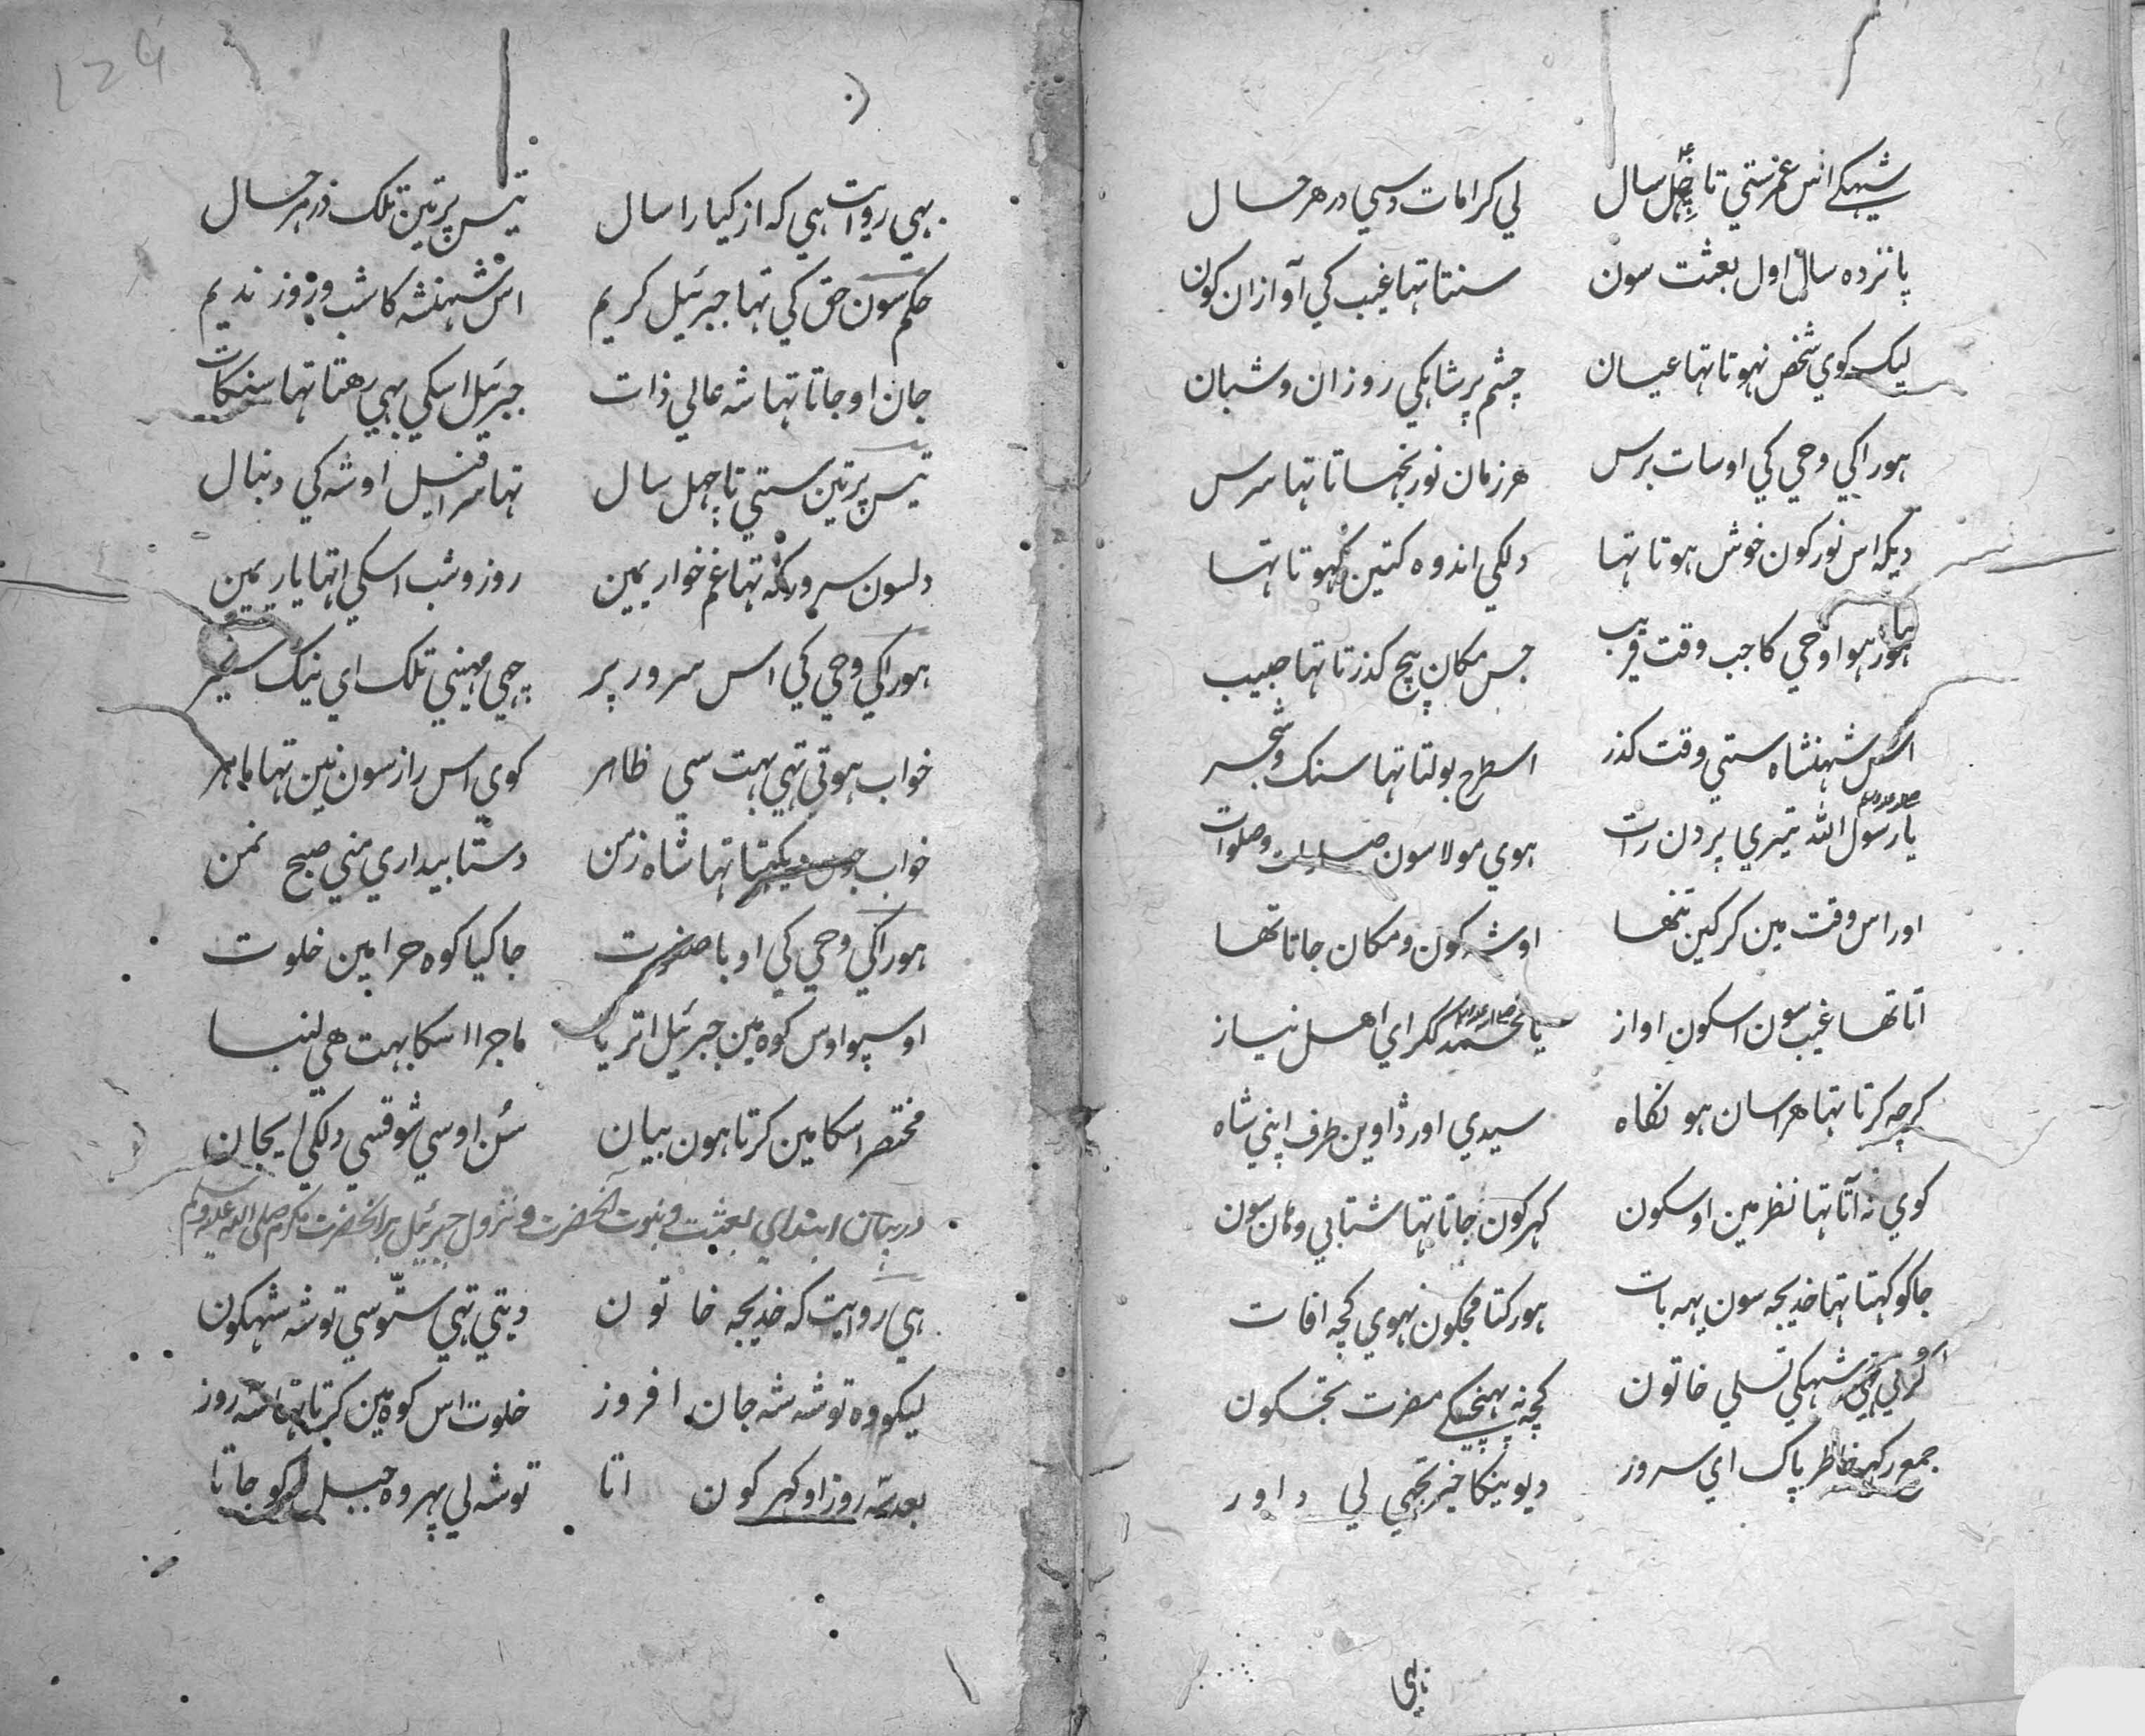 شہکے اس عمر ستي تا چہل سال لي کرامات دسي در هر حال
پانزده سال اول بعثت سون سنتا تها غيب کي آوازان کون
ليک کوي شخص نہوتا تها عيان چشم پر شاہکي روزان و شبان
ہور اکي وحي کي او سات برس هر زمان نور بخهاتا تها سرس
ديکہ اس نور کون خوش ہوتا تها دلکي اندوه کتين کہوتا تها
ہور ہوا وحي کا جب وقت قريب جس مکان بيچ کذرتا تها حبيب
اس شہنشاه ستي وقت کذر اسطرح بولتا تها سنک و شجر
يا رسول اللہ تيري پر دن رات ہوي مولا سون وصلوات
اور اس وقت مين کرکين تنها او شہ کون و مکان جاتا تها
اتا تها غيب سون اسکون اواز يا محمد ککر اي اهل نياز
کرچہ کرتا تها هراسان ہو نکاه سيدي اور ڈاوين طرف اپني شاه
کوي نہ آتا تها نظر مين اوسکون کہر کون جاتا تها شتابي ومان سون
جاکو کہتا تها خديجہ سون يہہ بات ہور کتا مجکون نہوي کچہ افات
شہکي تسلي خاتون کچہ نہ پہنچيکے مضرت تجکون
جمع رکہہ خاطر پاک اي سرور ديوينکا خير تجهي لي داور
يہي
يہي روايت ہي کہ از کيارا سال تيس پر تين تلک در ہر حال
حکم سون حق کي تها جبرئيل کريم اس شہنشہ کا شب و روز نديم
جان او جاتا تها شہ عالي ذات جبرئيل اسکي بهي رهتا تها سنکات
تيس پر تين ستي تا چہل سال تها سرافيل او شہ کي دنبال
دلسون سرور کہ تها غم خوار يمين روز و شب اسکي اتها يار يمين
ہور اکي وحي کي اس سرور پر چهي مهيني تلک اي نيک سير
خواب ہوتي تهي بہت سي ظاہر کوي اس راز سون نين تها ماہر
خواب جس ديکہتا تها شاه زمن دستا بيداري مني صبح نمن
ہور اکي وحي کي او با حضرت جا کيا کوه حرا مين خلوت
او سپو اوس کوه مين جبرئيل اتريا ماجرا اسکا بہت هي لنبا
مختصر اسکا مين کرتا ہون بيان سُن اوسي شوقسي دلکي ايجان
در بيان ابتداي بعثت و نبوت آنحضرت و نزول جبرئيل بر آنحضرت مکرم صلي اللہ عليہ وسلم
ہي روايت کہ خديجہ خاتون ديتي تهي ستّو سي توشہ شہکون
ليکو وه توشہ شہ جان افروز خلوت اس کوه مين کرتا تها سہ روز
بعد سہ روز او کہر کون اتا توشہ لي پهر وه جبل کو جاتا